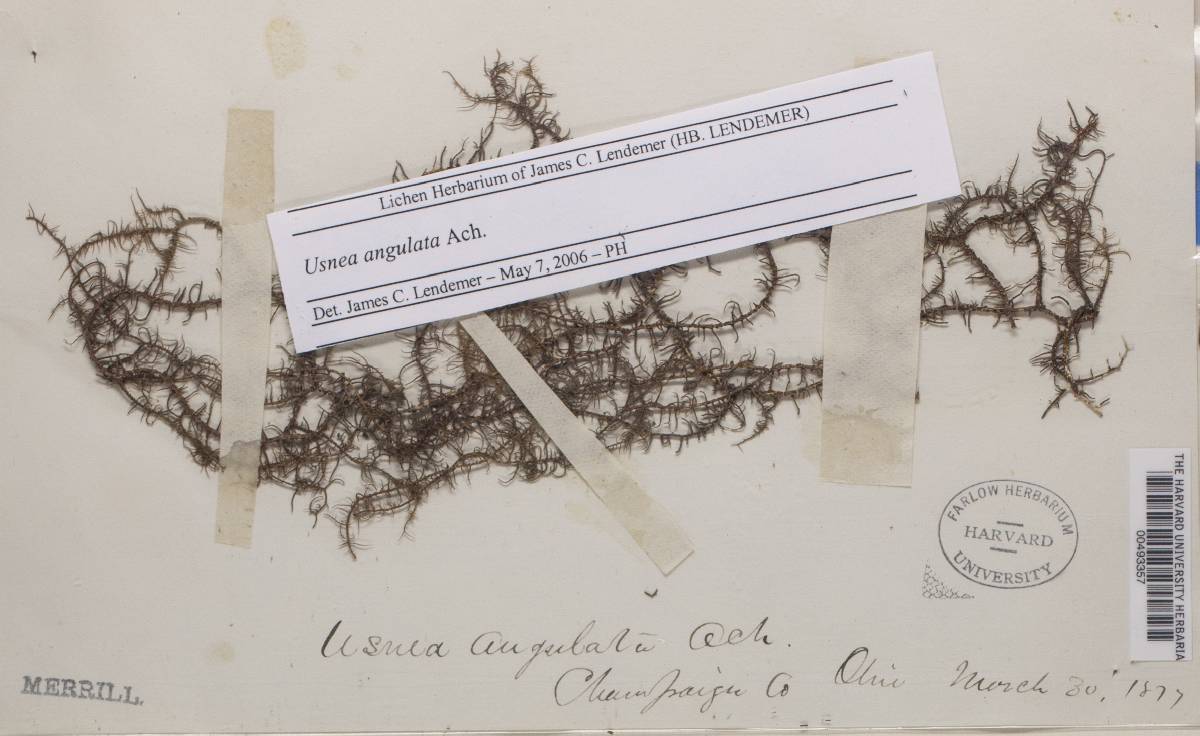 Lichen Herbarium of James C. Lendemer (HB. LENDEMER)
Usnea angulata Ach.
Det. James C. Lendemer – May 7, 2006 – PH
FARLOW HERBARIUM
HARVARD
UNIVERSITY
THE HARVARD UNIVERSITY HERBARIA
00493357
Usnea angulata Ach.
Champaign Co Ohio March 30, 1877
MERRILL.